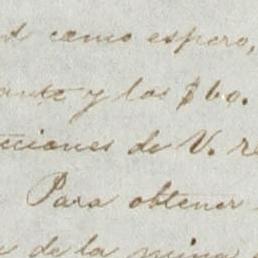 como espero,
y los $60.
cciones de V. re
Para obtener
de la mina